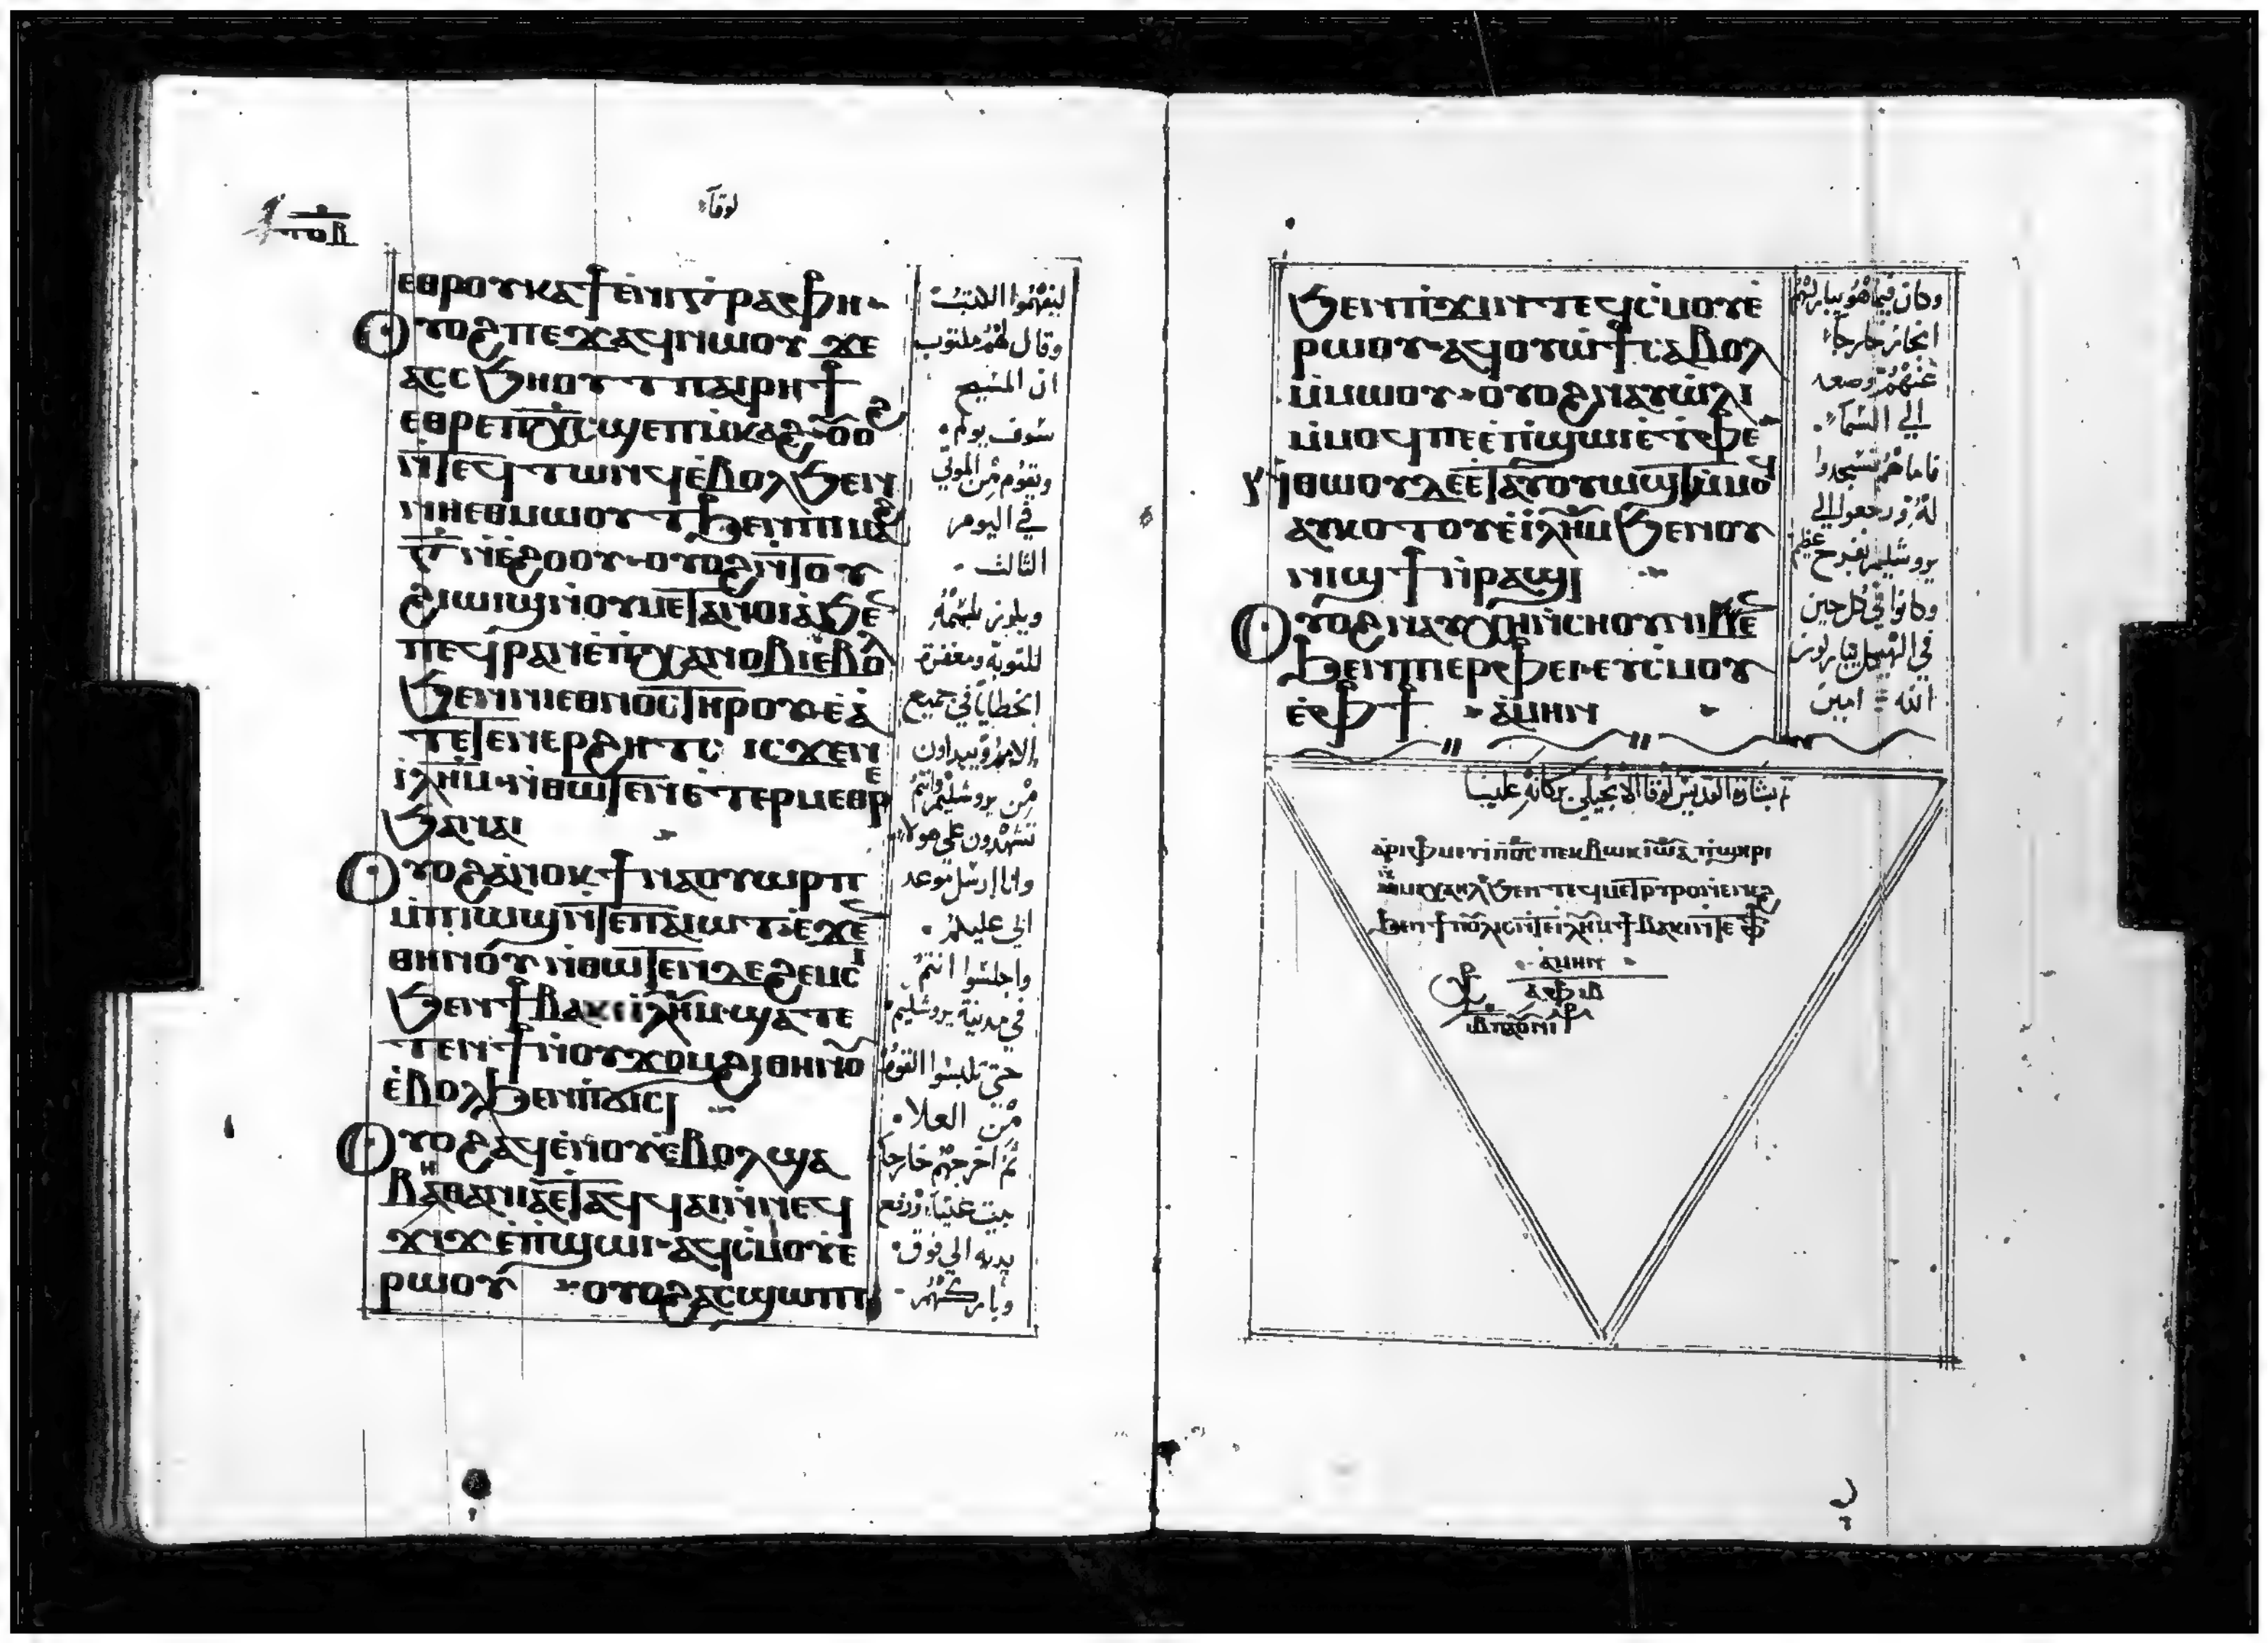 لوقا
ⲉⲑⲣⲟⲩⲕⲁϯ ⲉⲛⲓⲅⲣⲁⲫⲏ
ⲟⲩⲟϩ ⲡⲉϫⲁϥ ⲛⲱⲟⲩ ϫⲉ
ⲁⲥⲥϧⲏⲟⲩⲧ ⲡⲁⲓⲣⲏϯ
ⲉⲑⲣⲉ ⲡⲭⲥ ϣⲉⲡ ⲙⲕⲁϩ ⲟⲩⲟϩ
ⲛⲧⲉϥⲧⲱⲛϥ ⲉⲃⲟⲗϧⲉⲛ
ⲛⲏⲉⲑⲙⲱⲟⲩⲧ ϧⲉⲛ ⲡⲓⲙⲁϩ
ⲅ ⲛⲉϩⲟⲟⲩ ⲟⲩⲟϩ ⲛⲧⲟⲩ
ϩⲓⲱⲓϣ ⲛⲟⲩⲙⲉⲧⲁⲛⲟⲓⲁ ϧⲉⲛ
ⲡⲉϥⲣⲁⲛ ⲉⲡⲭⲁⲛⲟⲃⲓ ⲉⲃⲟⲗ
ϧⲉⲛ ⲛⲓⲉⲑⲛⲟⲥ ⲧⲏⲣⲟⲩ ⲉⲁ
ⲧⲉⲧⲉⲛⲉⲣϩⲏⲧⲥ ⲓⲥϫⲉⲛ
ⲓⲗⲏⲙ ⲛⲑⲱⲧⲉⲛ ⲉⲧⲉⲣⲙⲉⲑⲣⲉ
ϧⲁ ⲛⲁⲓ
ⲟⲩⲟϩ ⲁⲛⲟⲕ ϯⲛⲁⲟⲩⲱⲣⲡ
ⲙⲡⲓⲱϣ ⲛⲧⲉ ⲡⲁⲓⲱⲧ ⲉϫⲉⲛ
ⲑⲏⲛⲟⲩ ⲛⲑⲱⲧⲉⲛ ⲇⲉ ϩⲉⲙⲥⲓ
ϧⲉⲛ ϯⲃⲁⲕⲓ ⲓⲗⲏⲙ ϣⲁⲧⲉ
ⲧⲉⲛϯ ⲛⲟⲩϫⲟⲙ ϩⲓⲑⲏⲛⲟⲩ
ⲉⲃⲟⲗϧⲉⲛ ⲡϭⲓⲥⲓ
ⲟⲩⲟϩ ⲁϥⲉⲛⲟⲩ ⲉⲃⲟⲗ ϣⲁ
ⲃⲏⲑⲁⲛⲓⲁ ⲉⲧⲁϥϥⲁⲓ ⲛⲛⲉϥ
ϫⲓϫ ⲉⲡϣⲱⲓ ⲁϥⲥⲙⲟⲩ ⲉ
ⲣⲱⲟⲩ ⲟⲩⲟϩ ⲁⲥϣⲱⲡⲓ
ليفهموا الكتب
وقال لهم مكتوب
ان المسيح
سوف يولم
ويقوم من الموتي
في اليوم
الثالث
ويكرز باسمه
للتوبة ومغفرة
الخطايا في جميع
الامم وتبداون
من يروشليم وانتم
تشهدون علي هولاء
وانا ارسل موعد
ابي عليكم
واجلسوا انتم
في مدينة يروشليم
حتي تلبسوا القوة
من العلا
ثم اخرجهم خارجا
بيت عنيا ورفع
يديه الي فوق
وباركهم
ϧⲉⲛ ⲡϫⲓⲛⲧⲉϥⲥⲙⲟⲩ ⲉ
ⲣⲱⲟⲩ ⲁϥⲟⲩⲱϯ ⲥⲁⲃⲟⲗ
ⲙⲙⲱⲟⲩ ⲟⲩⲟϩ ⲛⲁⲩⲱⲗⲓ
ⲙⲙⲟϥ ⲡⲉ ⲉⲡϣⲱⲓ ⲉⲧⲫⲉ
ⲛⲑⲱⲟⲩ ⲇⲉ ⲉⲧⲁⲩⲟⲩⲱϣⲧ ⲙⲙⲟϥ
ⲁⲩⲕⲟⲧⲟⲩ ⲉⲓⲗⲏⲙ ϧⲉⲛ ⲟⲩ
ⲛⲓϣϯ ⲛⲣⲁϣⲓ
ⲟⲩⲟϩ ⲛⲁⲩⲭⲏ ⲛⲥⲏⲟⲩ ⲛⲓⲃⲉⲛ
ϧⲉⲛ ⲡⲓⲉⲣⲫⲉⲓ ⲉⲩⲥⲙⲟⲩ
ⲉⲫϯ ⲁⲙⲏⲛ
وكان فيما هو يباركهم
انحاز خارجا
عنهم وصعد
الي السماء
فاما هم فسجدوا
له ورجعوا الي
يروشليم بفرح عظيم
وكانوا في كل حين
في الهيكل يباركون
الله امين
بشارة القديس لوقا الانجيلي بركاته علينا
ⲁⲣⲓⲫⲙⲉⲩⲓ ⲡⲟⲥ ⲡⲉⲕⲃⲱⲕ ⲓⲱⲁ ⲡϣⲏⲣⲓ
ⲁⲙⲏⲛ